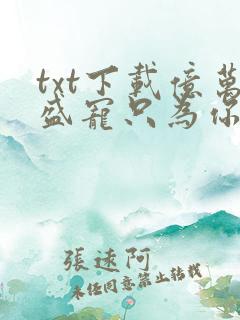 txt下載億萬
盛寵只為你
張逑阿
未經同意禁止轉載